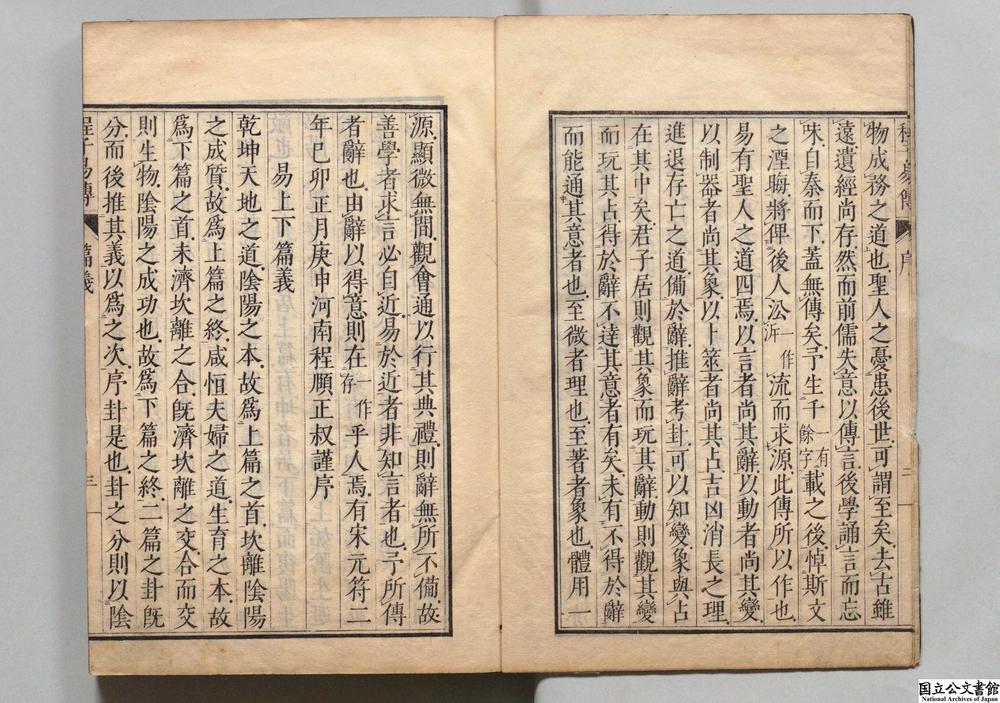 程子易傳 序 二
物成務之道也聖人之憂患後世可謂至矣去古雖
遠遺經尚存然而前儒失意以傳言後學誦言而忘
味自秦而下蓋無傳矣予生千一有餘字載之後悼斯文
之湮晦將俾後人㳂一作泝流而求源此傳所以作也
易有聖人之道四焉以言者尚其辭以動者尚其變
以制器者尚其象以卜筮者尚其占吉凶消長之理
進退存亡之道備於辭推辭考卦可以知變象與占
在其中矣君子居則觀其象而玩其辭動則觀其變
而玩其占得於辭不達其意者有矣未有不得於辭
而能通其意者也至微者理也至著者象也體用一
源顯微無間觀會通以行其典禮則辭無所不備故
善學者求言必自近易於近者非知言者也予所傳
者辭也由辭以得意則在一作存乎人焉有宋元符二
年己卯正月庚申河南程頤正叔謹序
易上下篇義
乾坤天地之道陰陽之本故爲上篇之首坎離陰陽
之成質故爲上篇之終咸恒夫婦之道生育之本故
爲下篇之首未濟坎離之合旣濟坎離之交合而交
則生物陰陽之成功也故爲下篇之終二篇之卦旣
分而後推其義以爲之次序卦是也卦之分則以陰
程子易傳 篇義 三
国立公文書館
National Archives of Japan